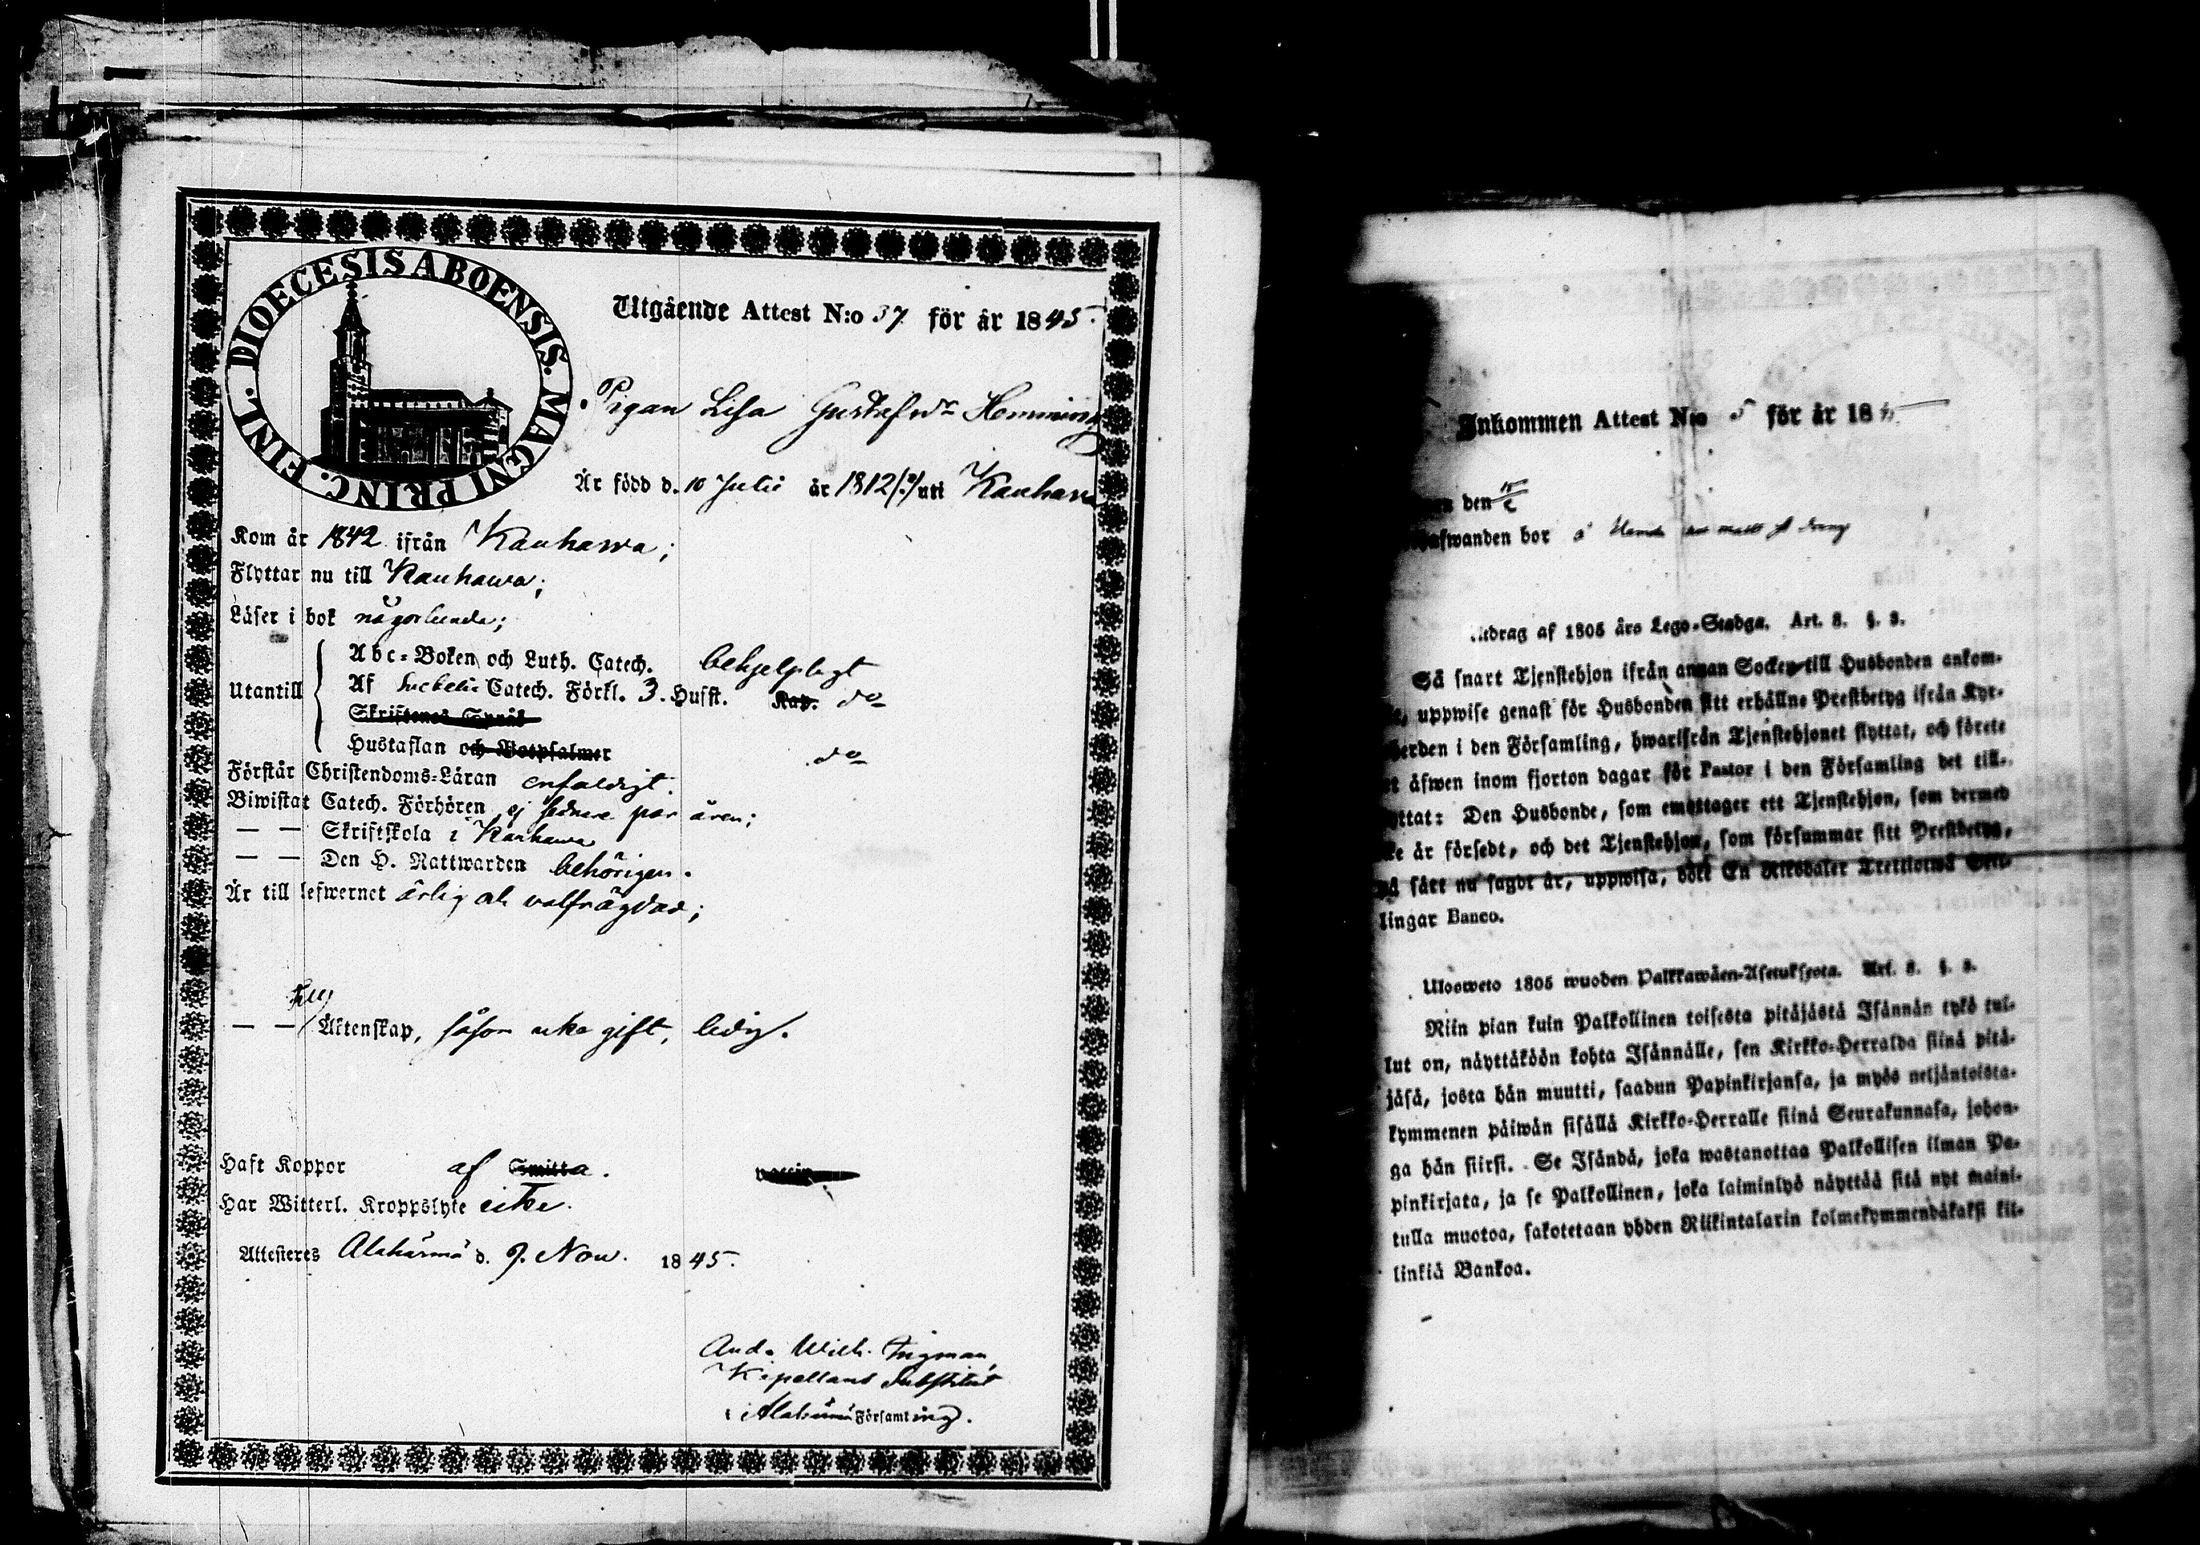 DIOECESIS ABOENSIS. MAGNI PRINC. FINL.
Utgående Attest N:o 37 för år 1845.
Pigan Lisa Gustafsdr Hemming
Är född d. 10 Julii år 1812/?/ uti Kauhava
Kom år 1842 ifrån Kauhava;
Flyttar nu till Kauhava;
Läser i bok någorlunda;
Utantill
Abc-Boken och Luth. Catech. behjelpligt
Af Svebelii Catech. Förkl. 3. Hufst. Kap. do
Skriftenes Språk
Hustaflan och Botpsalmer do
Förstår Christendoms-Läran enfaldigt.
Biwistat Catech. Förhören ej sednare par åren;
— — Skriftskola i Kauhava
— — Den H. Nattwarden behörigen.
Är till lefwernet ärlig och välfrägdad;
— — Äktenskap, såsom icke gift, ledig.
Haft Koppor af Smitta.
Har Witterl. Kroppslyte icke.
Attesteras Alahärmä d. 9. Nov. 1845.
And. Wilh. Ingman
Kapellans Substitut
i Alahärmä Församling.
Inkommen Attest N:o 5 för år 18
den
afwanden bor å
Utdrag af 1805 års Lego-Stadga. Art. 8. §. 8.
Så snart Tjenstehjon ifrån annan Socken till Husbonden ankom-
, uppwise genast för Husbonden sitt erhållne Prestbetyg ifrån Kyr-
herden i den Församling, hwarifrån Tjenstehjonet flyttat, och förete
äfwen inom fjorton dagar för Pastor i den Församling det till-
yttat: Den Husbonde, som emottager ett Tjenstehjon, som dermed
är försedt, och det Tjenstehjon, som försummar sitt Prestbetyg,
på sätt nu sagdt är, uppwisa, böte En Riksdaler Trettiotwå Skil-
lingar Banco.
Ulosweto 1805 wuoden Palkkawäen-Asetuksesta. Art. 8. §. 8.
Niin pian kuin Palkollinen toisesta pitäjästä Isännän tykö tul-
lut on, näyttäköön kohta Isännälle, sen Kirkko-Herralda siinä pitä-
jäsä, josta hän muutti, saadun Papinkirjansa, ja myös neljäntoista-
kymmenen päiwän sisällä Kirkko-Herralle siinä Seurakunnasa, johon-
ga hän siirsi. Se Isändä, joka wastanottaa Palkollisen ilman Pa-
pinkirjata, ja se Palkollinen, joka laiminlyö näyttää sitä nyt maini-
tulla muotoa, sakotetaan yhden Riikintalarin kolmekymmendäkaksi kil-
linkiä Bankoa.